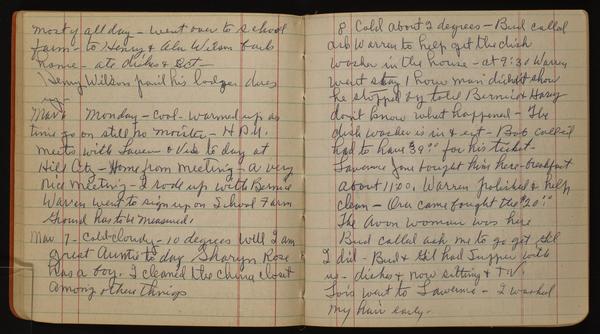 mosty all day - went over to school
farm - to Henry & Alu Wilson back
home - ate dishes & Set
Henry Wilson paid his lodge dues
Mar 6 Monday - Cool - warmed up as
time go on still no moister - H.D.U.
meets with Lavern & Vida to day at
Hill City - Home from meeting - a very
nice meeting - I rode up with Bernice
Warren went to sign up on School Farm
Ground has to be measured.
Mar. 7 - Cold - cloudy - 10 degrees well I am
great Auntie to day Sharyn Rose
has a boy. I cleaned the china closet
among other things
8 Cold about 2 degrees - Bud called
ask Warren to help get the dish
washer in the house - at 9:30 Warren
went stay 1 hour man didn't show
he stopped by told Bernice & Harry
don't know what happened - The
dish washer is in & set - Bob called
had to have 39.00 for his ticket -
Laverne Jane bought him here - breakfast
about 11:00, Warren polished & help
clean - Ora came fought the "20."
The Avon woman was here
Bud called ask me to go get
I did - Bud & had Supper with
us - dishes & now sitting & T.V.
Lois went to Laverne - I washed
my hair early.